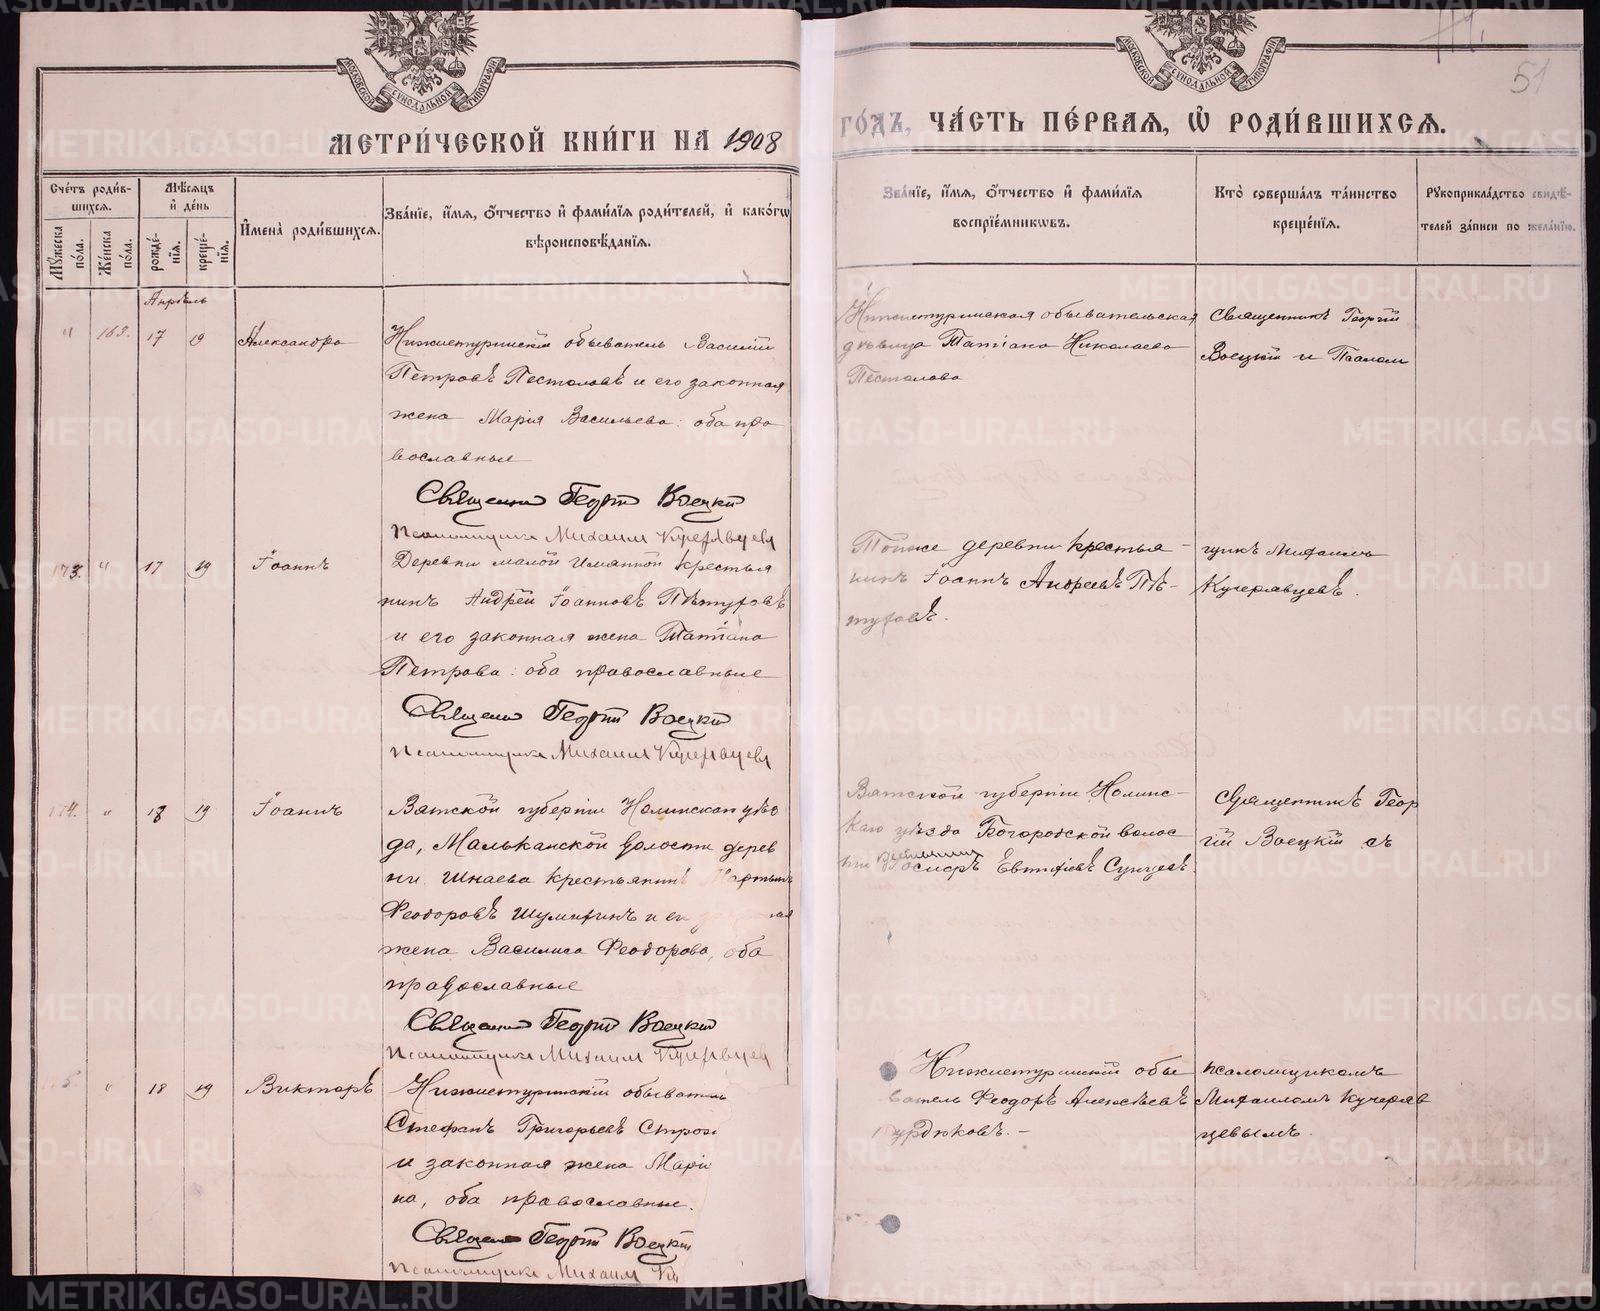 МЕТРИ́ЧЕСКОЙ КНИ́ГИ НА 1908
Сче́тъ роди́в-
шихся.
Мѣ́сяцъ
и҆ де́нь
Му́жеска
по́ла.
Же́нска
по́ла.
рожде́-
нїя.
креще́-
нїя.
И҆мена̀ роди́вшихся.
Зва́нїе, и҆́мя, ѻ҆́тчество и҆ фами́лїя роди́телей, и҆ како́гѡ
вѣроисповѣ́данїя.
Апрѣль
" 163. 17 19 Александра
Нижнетуринскій обыватель Василій
Петровъ Пестоловъ и его законная
жена Марія Васильева: оба пра
вославные
Священник Георгій Воецкій
Псаломщикъ Михаил Кучерявцев
173. " 17 19 Іоаннъ
Деревни малой Именной крестья
нинъ Андрей Іоанновъ Пѣтуховъ
и его законная жена Татіана
Петрова: оба православные
Священник Георгій Воецкій
Псаломщикъ Михаил Кучерявцев
174. " 18 19 Іоаннъ
Вятской губерніи Нолинскаго уѣз
да, Мальканской волости дерев
ни Шнаева крестьянинъ
Феодоровъ Шумихинъ и его
жена Василиса Феодорова, оба
православные
Священник Георгій Воецкій
Псаломщикъ Михаил Кучерявцев
" 18 19 Викторъ
Нижнетуринскій обыватель
Стефанъ Григорьевъ
и законная жена Марі
на, оба православные.
Священник Георгій Воецкій
Псаломщикъ Михаил
51
ГО́ДЪ, ЧА́СТЬ ПЕ́РВАЯ, Ѡ҆ РОДИ́ВШИХСЯ.
Зва́нїе, и҆́мя, ѻ҆́тчество и҆ фами́лїя
воспрїе́мникѡвъ.
Кто̀ соверша́лъ та́инство
креще́нїя.
Рукоприкла́дство свидѣ́-
телей за́писи по жела́нїю.
Нижнетуринская обывательская
дѣвица Татіана Николаева
Пестолова
Священникъ Георгій
Воецкій и Псалом
Тойже деревни крестья-
нинъ Іоаннъ Андреевъ Пѣ-
туховъ.
щикъ Михаилъ
Кучерявцевъ.
Вятской губерніи Нолинс-
каго уѣзда Богородской волос
ти Евтихіевъ Сунцевъ.
Священникъ Геор
гій Воецкій съ
Нижнетуринскій обы
ватель Феодоръ Алексѣевъ
псаломщикомъ
Михаиломъ Кучеряв
цевымъ.